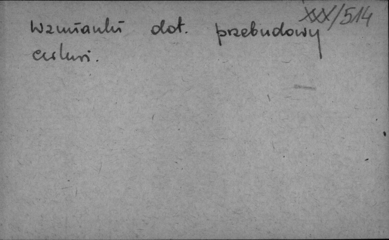 XXX/514
Wzmianki dot. przebudowy